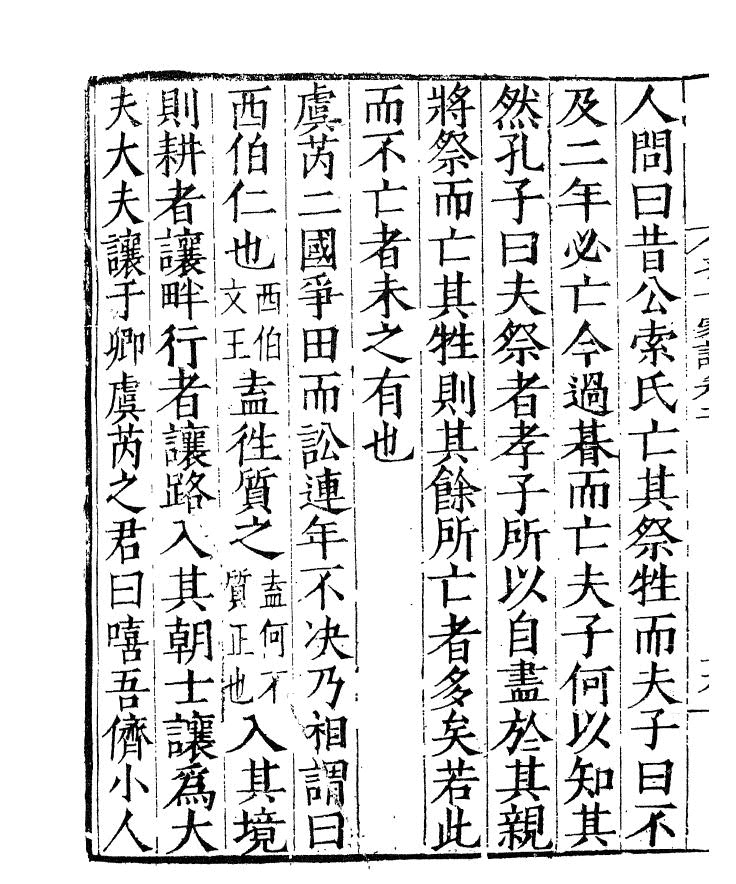 人問曰昔公索氏亡其祭牲而夫子曰不
及二年必亡今過朞而亡夫子何以知其
然孔子曰夫祭者孝子所以自盡於其親
將祭而亡其牲則其餘所亡者多矣若此
而不亡者未之有也
虞芮二國爭田而訟連年不决乃相謂曰
西伯仁也西伯文王盍徃質之盍何不質正也入其境
則耕者讓畔行者讓路入其朝士讓爲大
夫大夫讓于卿虞芮之君曰嘻吾儕小人